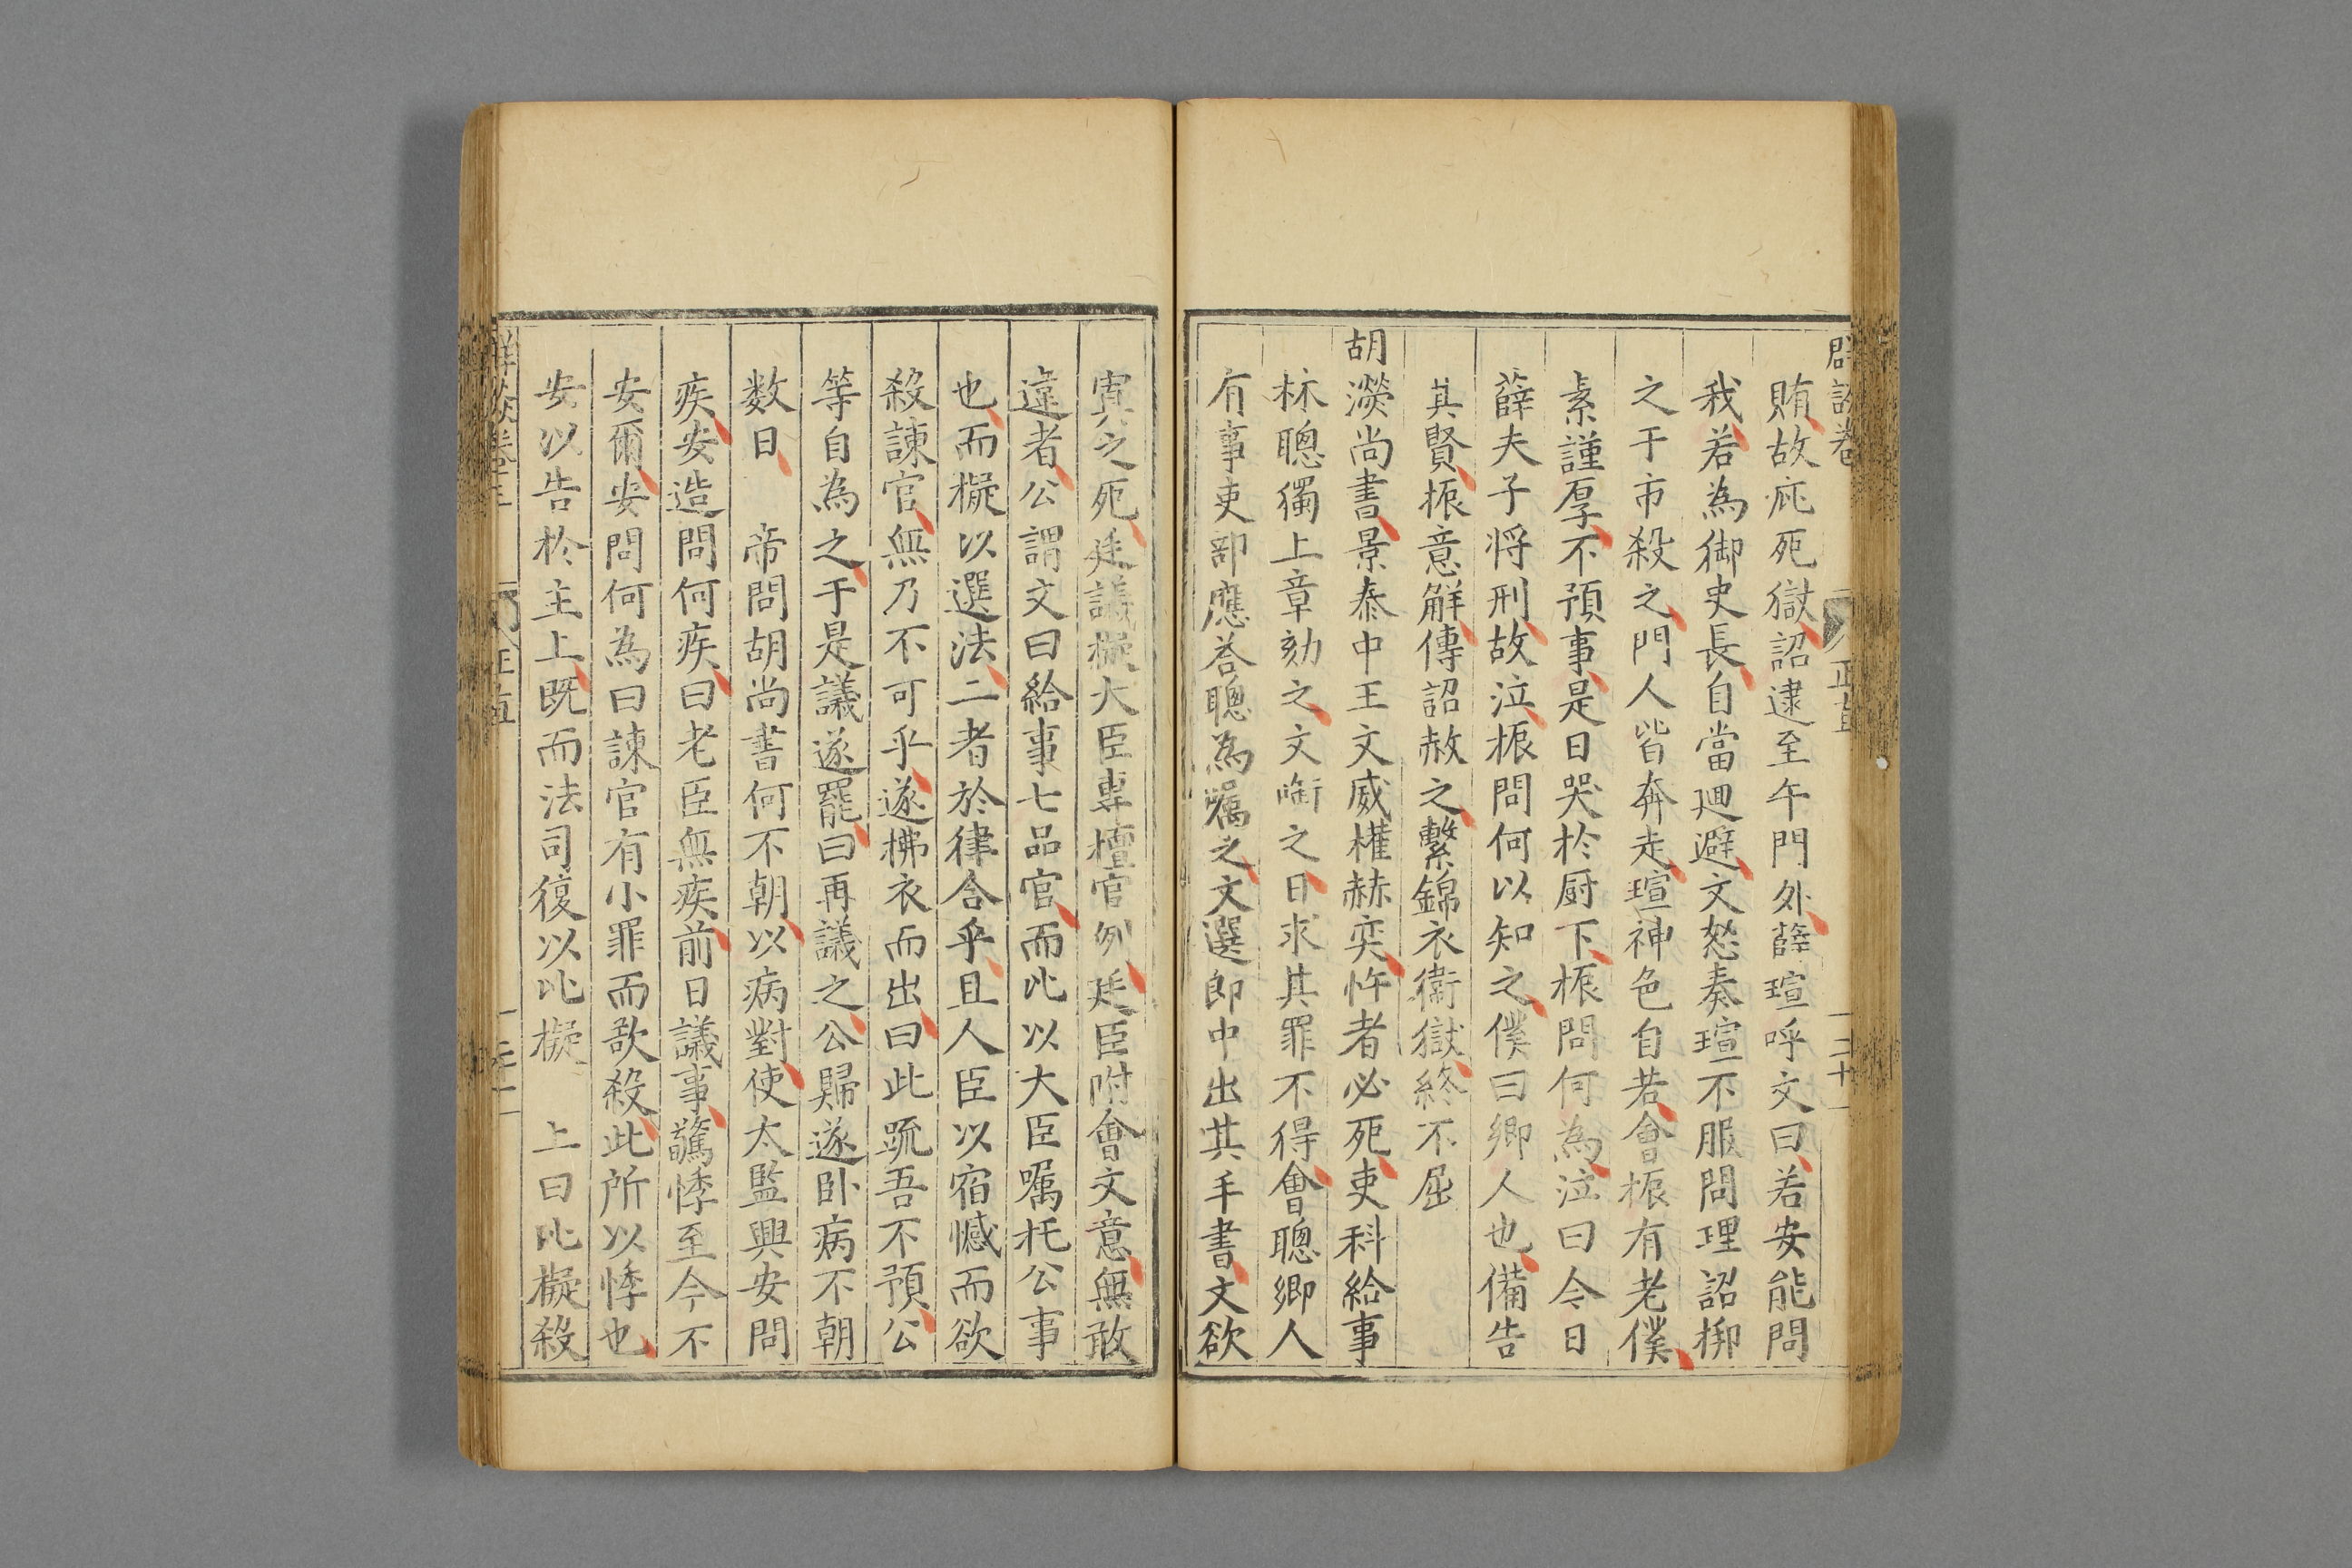 賄故庇死獄詔逮至午門外薛瑄呼文曰若安能問
我若為御史長自當廻避文怒奏瑄不服問理詔柳
之于市殺之門人皆奔走瑄神色自若會振有老僕
素謹厚不預事是日哭於厨下振問何為泣曰今日
薛夫子將刑故泣振問何以知之僕曰鄉人也備告
其賢振意解傳詔赦之繫錦衣衞獄終不屈
胡濙尚書景泰中王文威權赫奕忤者必死吏科給事
林聰獨上章劾之文啣之日求其罪不得會聰鄉人
有事吏部應荅聰為囑之文選郎中出其手書文欲
寘之死廷議擬大臣專擅官列廷臣附會文意無敢
違者公謂文曰給事七品官而比以大臣囑托公事
也而擬以選法二者於律合乎且人臣以宿憾而欲
殺諫官無乃不可乎遂拂衣而出曰此䟽吾不預公
等自為之于是議遂罷曰再議之公歸遂卧病不朝
数日 帝問胡尚書何不朝以病對使太監興安問
疾安造問何疾曰老臣無疾前日議事驚悸至今不
安爾安問何為曰諫官有小罪而欲殺此所以悸也
安以告於主上既而法司復以比擬 上曰比擬殺